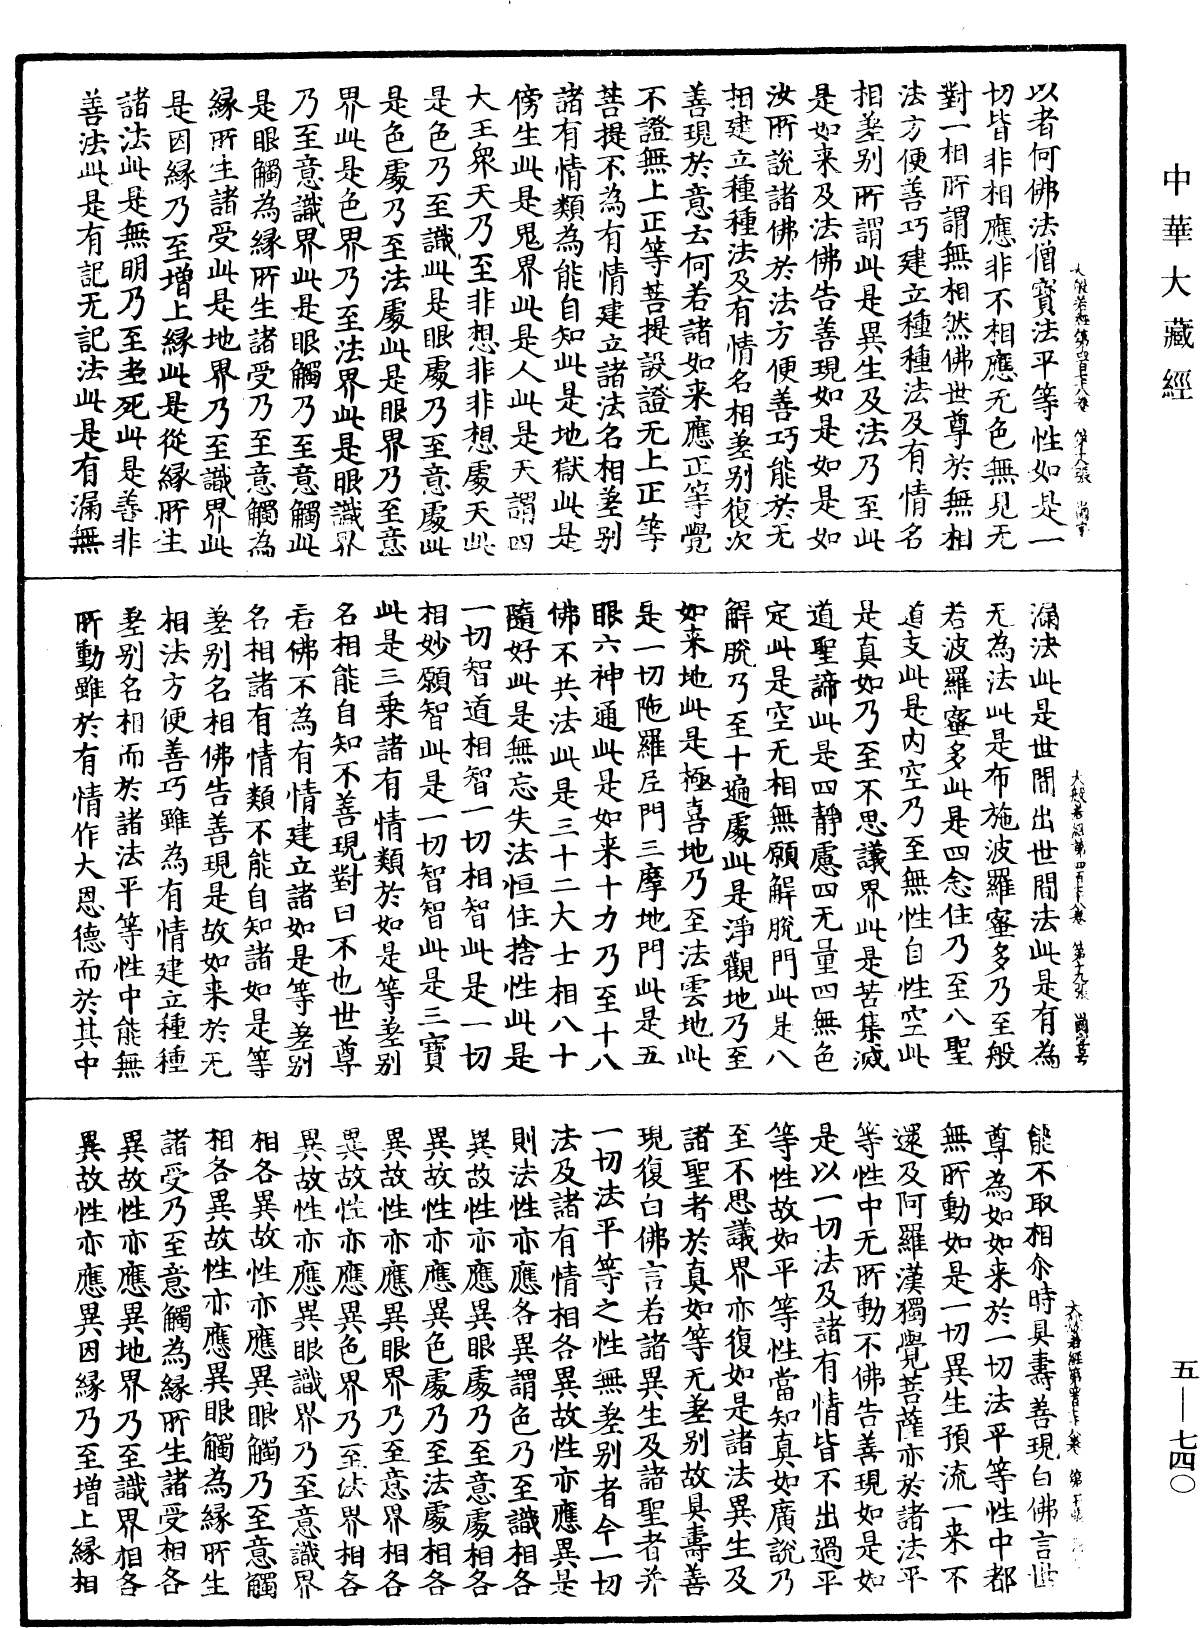 中華大藏經
以者何佛法僧寶法平等性如是一
切皆非相應非不相應无色無見无
對一相所謂無相然佛世尊於無相
法方便善巧建立種種法及有情名
相差别所謂此是異生及法乃至此
是如来及法佛告善現如是如是如
汝所說諸佛於法方便善巧能於无
相建立種種法及有情名相差别復次
善現於意云何若諸如来應正等覺
不證無上正等菩提設證无上正等
菩提不為有情建立諸法名相差别
諸有情類為能自知此是地獄此是
傍生此是鬼界此是人此是天謂四
大王衆天乃至非想非非想處天此
是色乃至識此是眼處乃至意處此
是色處乃至法處此是眼界乃至意
界此是色界乃至法界此是眼識界
乃至意識界此是眼觸乃至意觸此
是眼觸為緣所生諸受乃至意觸為
緣所生諸受此是地界乃至識界此
是因緣乃至增上緣此是從緣所生
諸法此是無明乃至老死此是善非
善法此是有記无記法此是有漏無
大般若經第四百七十八卷 第十八張
漏法此是世間出世間法此是有為
无為法此是布施波羅蜜多乃至般
若波羅蜜多此是四念住乃至八聖
道支此是内空乃至無性自性空此
是真如乃至不思議界此是苦集滅
道聖諦此是四靜慮四无量四無色
定此是空无相無願解脫門此是八
解脫乃至十遍處此是淨觀地乃至
如来地此是極喜地乃至法雲地此
是一切陁羅尼門三摩地門此是五
眼六神通此是如来十力乃至十八
佛不共法此是三十二大士相八十
隨好此是無忘失法恒住捨性此是
一切智道相智一切相智此是一切
相妙願智此是一切智智此是三寶
此是三乘諸有情類於如是等差别
名相能自知不善現對曰不也世尊
若佛不為有情建立諸如是等差别
名相諸有情類不能自知諸如是等
差别名相佛告善現是故如来於无
相法方便善巧雖為有情建立種種
差别名相而於諸法平等性中能無
所動雖於有情作大恩德而於其中
大般若經第四百七十八卷 第十九張
能不取相尒時具壽善現白佛言世
尊為如如来於一切法平等性中都
無所動如是一切異生預流一来不
還及阿羅漢獨覺菩薩亦於諸法平
等性中无所動不佛告善現如是如
是以一切法及諸有情皆不出過平
等性故如平等性當知真如廣說乃
至不思議界亦復如是諸法異生及
諸聖者於真如等无差别故具壽善
現復白佛言若諸異生及諸聖者并
一切法平等之性無差别者今一切
法及諸有情相各異故性亦應異是
則法性亦應各異謂色乃至識相各
異故性亦應異眼處乃至意處相各
異故性亦應異色處乃至法處相各
異故性亦應異眼界乃至意界相各
異故性亦應異色界乃至法界相各
異故性亦應異眼識界乃至意識界
相各異故性亦應異眼觸乃至意觸
相各異故性亦應異眼觸為緣所生
諸受乃至意觸為緣所生諸受相各
異故性亦應異地界乃至識界相各
異故性亦應異因緣乃至增上緣相
五—七四〇